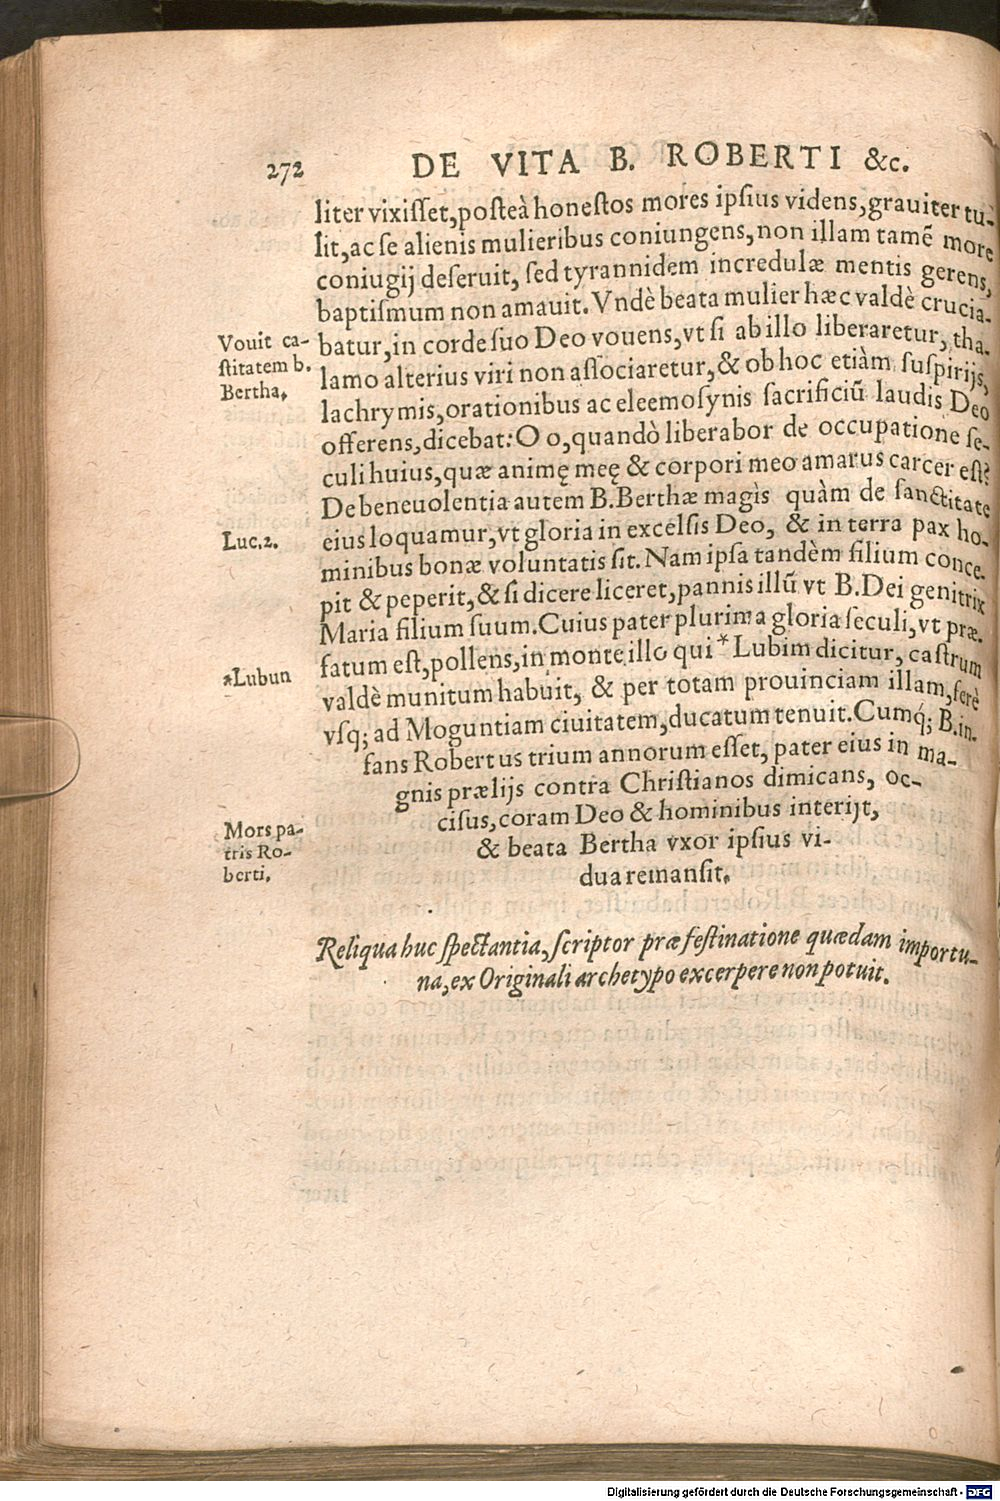 272 DE VITA B. ROBERTI &c.
liter vixiſſet, poſteà honeſtos mores ipſius videns, grauiter tu-
lit, ac ſe alienis mulieribus coniungens, non illam tamẽ more
coniugij deſeruit, ſed tyrannidem incredulæ mentis gerens,
baptiſmum non amauit. Vndè beata mulier hæc valdè crucia-
Vouit ca-
ſtitatem b.
Bertha.
batur, in corde ſuo Deo vouens, vt ſi ab illo liberaretur, tha-
lamo alterius viri non aſſociaretur, & ob hoc etiàm ſuſpirijs,
lachrymis, orationibus ac eleemoſynis ſacrificiũ laudis Deo
offerens, dicebat: O o, quandò liberabor de occupatione ſe-
culi huius, quæ animę meę & corpori meo amarus carcer eſt?
De beneuolentia autem B. Berthæ magìs quàm de ſanctitate
Luc. 2.
eius loquamur, vt gloria in excelſis Deo, & in terra pax ho-
minibus bonæ voluntatis ſit. Nam ipſa tandèm filium conce-
pit & peperit, & ſi dicere liceret, pannis illũ vt B. Dei genitrix
Maria filium ſuum. Cuius pater plurima gloria ſeculi, vt præ-
fatum eſt, pollens, in monte illo qui * Lubim dicitur, caſtrum
*Lubun
valdè munitum habuit, & per totam prouinciam illam, ferè
vſq; ad Moguntiam ciuitatem, ducatum tenuit. Cumq́; B. in-
fans Robertus trium annorum eſſet, pater eius in ma-
gnis prælijs contra Chriſtianos dimicans, oc-
ciſus, coram Deo & hominibus interijt,
Mors pa-
tris Ro-
berti.
& beata Bertha vxor ipſius vi-
dua remanſit.
Reliqua huc ſpectantia, ſcriptor præ feſtinatione quædam importu-
na, ex Originali archetypo excerpere non potuit.
Digitalisierung gefördert durch die Deutsche Forschungsgemeinschaft - DFG